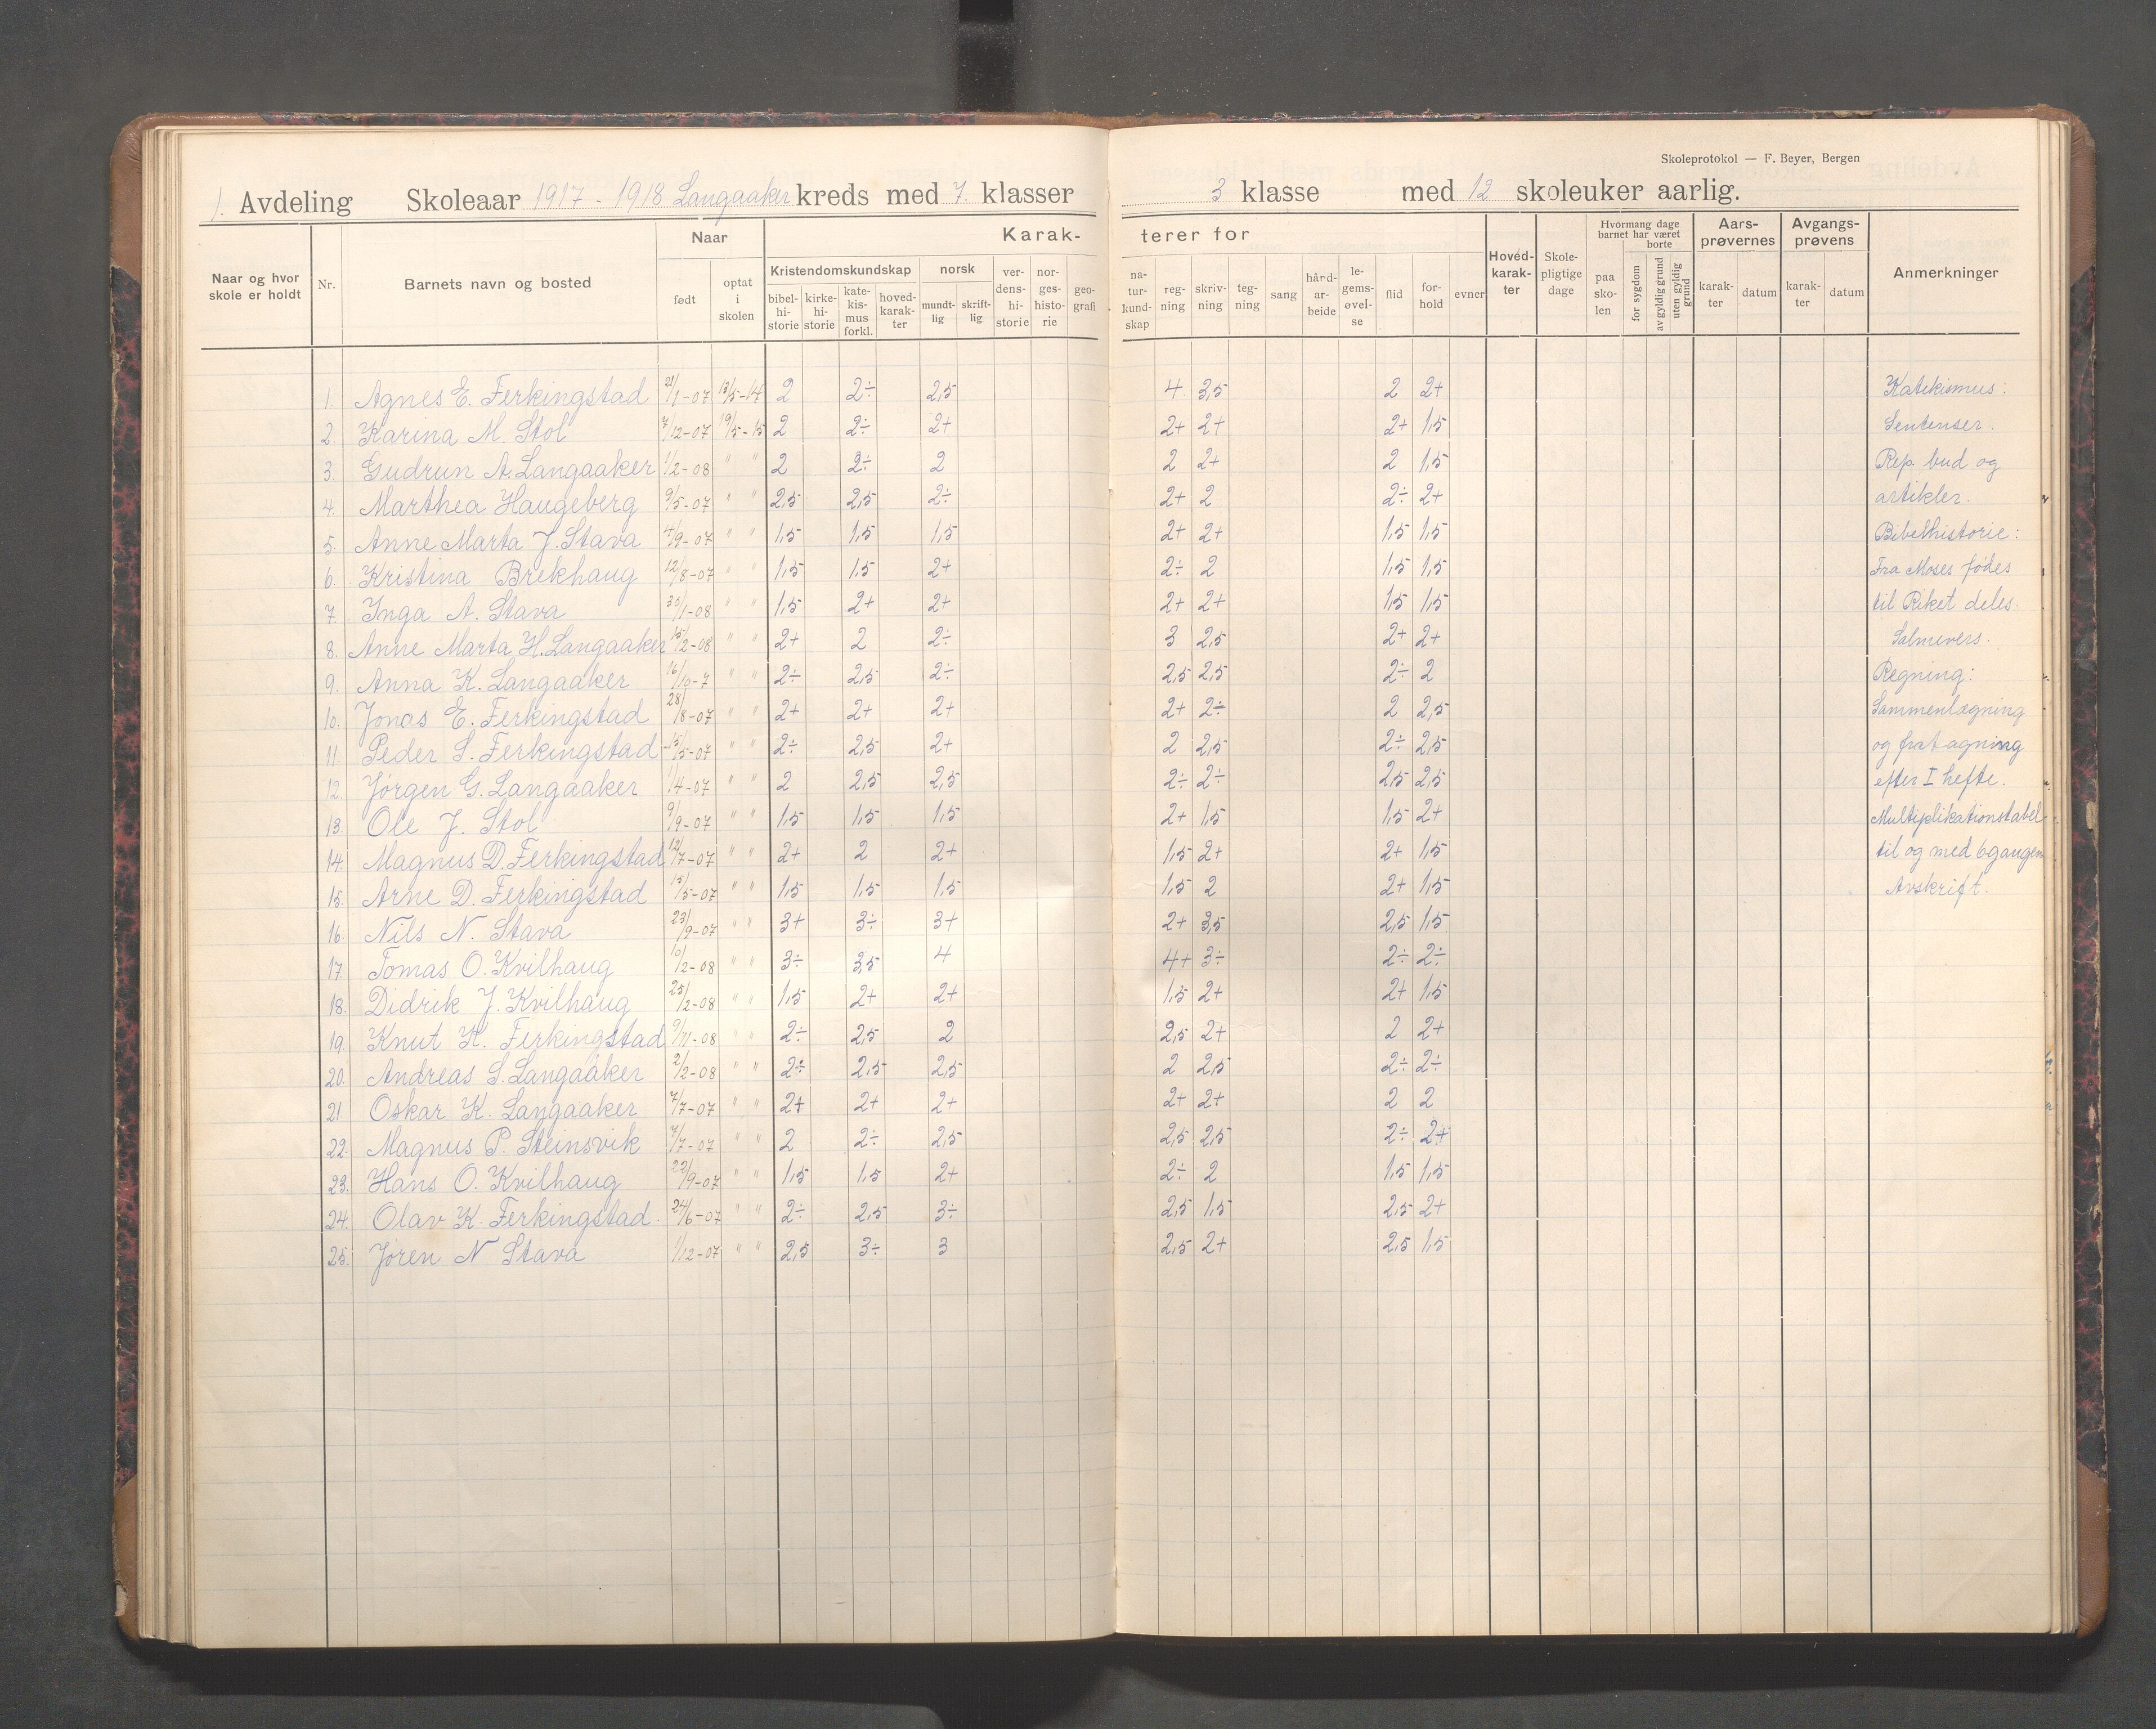 Skoleprotokol — F. Beyer, Bergen
1. Avdeling Skoleaar 1917 - 1918 Langaaker kreds med 7. klasser 3 klasse med 12 skoleuker aarlig.
Naar og hvor skole er holdt Nr. Barnets navn og bosted Naar født optat i skolen Karakterer for Kristendomskundskap bibelhistorie kirkehistorie katekismus forkl. hovedkarakter norsk mundtlig skriftlig verdenshistorie norgeshistorie geografi naturkundskap regning skrivning tegning sang hårdarbeide legemsøvelse flid forhold evner Hovedkarakter Skolepligtige dage Hvormang dage barnet har været paa skolen borte for sygdom av gyldig grund uten gyldig grund Aarsprøvernes karakter datum Avgangsprøvens karakter datum Anmerkninger
1. Agnes E. Ferkingstad 21/1-07 13/5-14 2 2÷ 2,5 4 3,5 2 2+ Katekismus:
2. Karina M. Stol 7/12-07 19/5-15 2 2÷ 2+ 2+ 2+ 2+ 1,5 Sentenser.
3. Gudrun A. Langaaker 1/2-08 " " 2 2÷ 2 2 2+ 2 1,5 Rep. bud og
4. Marthea Haugeberg 9/5-07 " " 2,5 2,5 2÷ 2+ 2 2÷ 2+ artikler.
5. Anne Marta J. Stava 4/9-07 " " 1,5 1,5 1,5 2+ 2+ 1,5 1,5 Bibelhistorie:
6. Kristina Brekhaug 12/8-07 " " 1,5 1,5 2+ 2÷ 2 1,5 1,5 Fra Moses fødes
7. Inga A. Stava 30/1-08 " " 1,5 2+ 2+ 2+ 2+ 1,5 1,5 til Riket deles.
8. Anne Marta H. Langaaker 15/2-08 " " 2+ 2 2÷ 3 2,5 2+ 2+ Salmevers.
9. Anna K. Langaaker 16/10-7 " " 2÷ 2,5 2÷ 2,5 2,5 2÷ 2 Regning:
10. Jonas E. Ferkingstad 28/8-07 " " 2+ 2+ 2+ 2+ 2÷ 2 2,5 Sammenlægning
11. Peder S. Ferkingstad 15/5-07 " " 2÷ 2,5 2+ 2 2,5 2÷ 2,5 og fratagning
12. Jørgen G. Langaaker 1/4-07 " " 2 2,5 2,5 2÷ 2÷ 2,5 2,5 efter I hefte.
13. Ole J. Stol 9/9-07 " " 1,5 1,5 1,5 2+ 1,5 1,5 2+ Multiplikationstabel
14. Magnus D. Ferkingstad 12/7-07 " " 2+ 2 2+ 1,5 2+ 2+ 1,5 til og med 6gangen
15. Arne D. Ferkingstad 15/5-07 " " 1,5 1,5 1,5 1,5 2 2+ 1,5 Avskrift.
16. Nils N. Stava 23/9-07 " " 3+ 3÷ 3+ 2+ 3,5 2,5 1,5
17. Tomas O. Kvilhaug 10/2-08 " " 3÷ 3,5 4 4+ 3÷ 2÷ 2÷
18. Didrik J. Kvilhaug 25/2-08 " " 1,5 2+ 2+ 1,5 2+ 2+ 1,5
19. Knut K. Ferkingstad 9/11-08 " " 2÷ 2,5 2 2,5 2+ 2 2+
20. Andreas S. Langaaker 2/2-08 " " 2÷ 2,5 2,5 2 2,5 2÷ 2÷
21. Oskar K. Langaaker 7/7-07 " " 2+ 2+ 2+ 2+ 2+ 2 2
22. Magnus P. Steinsvik 7/7-07 " " 2 2÷ 2,5 2,5 2,5 2÷ 2+
23. Hans O. Kvilhaug 22/9-07 " " 1,5 1,5 2+ 2÷ 2 1,5 1,5
24. Olav K. Ferkingstad. 24/6-07 " " 2÷ 2,5 3÷ 2,5 1,5 2,5 2+
25. Joren N Stava 1/12-07 " " 2,5 3÷ 3 2,5 2+ 2,5 1,5